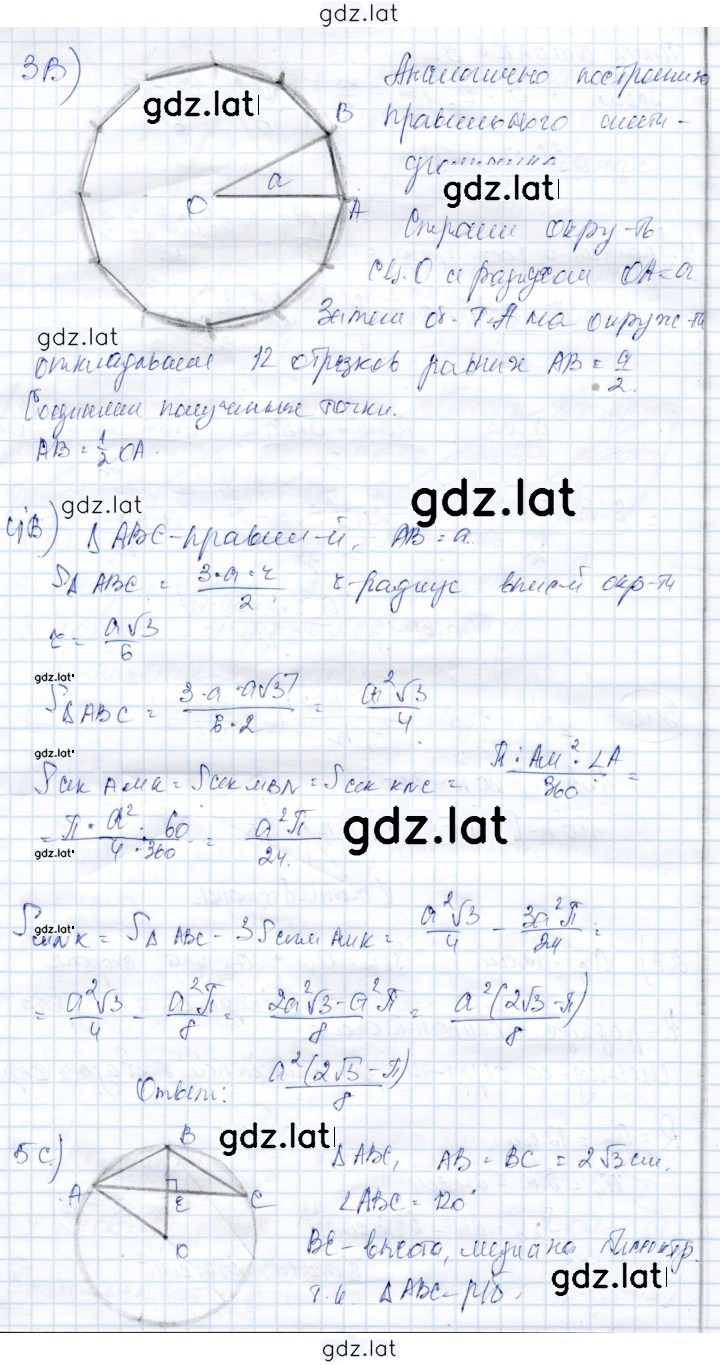 gdz.lat
3В)
gdz.lat
Аналогично построению
B
правильного шести-
a
O
A
gdz.lat
Строим окру-ть
с ц. О и радиусом OA=a
Затем от т.А на окруж-ти
gdz.lat
откладываем 12 отрезков равных AB = a/2.
Соединим полученные точки.
AB = 1/2 OA.
gdz.lat
gdz.lat
4В) Δ ABC - правил-й, AB = a.
SΔ ABC = 3·a·r/2 r - радиус впис-й окр-ти
r = a√3/6
gdz.lat
SΔABC = 3·a·a√3/6·2 = a²√3/4
gdz.lat
Sсек AMK = Sсек MBN = Sсек KNC = π·AM²·∠A/360 =
= π·a²·60/4·360 = a²π/24.
gdz.lat
gdz.lat
gdz.lat
SΔ ABC - 3S AMK = a²√3/4 - 3a²π/24 =
= a²√3/4 - a²π/8 = 2a²√3-a²π/8 = a²(2√3-π)/8
Ответ: a²(2√3-π)/8
5С)
B
gdz.lat
A
E
C
O
Δ ABC, AB = BC = 2√3 см,
∠ABC = 120°
BE - высота, медиана биссектр.
т.к. Δ ABC - р/б,
gdz.lat
gdz.lat